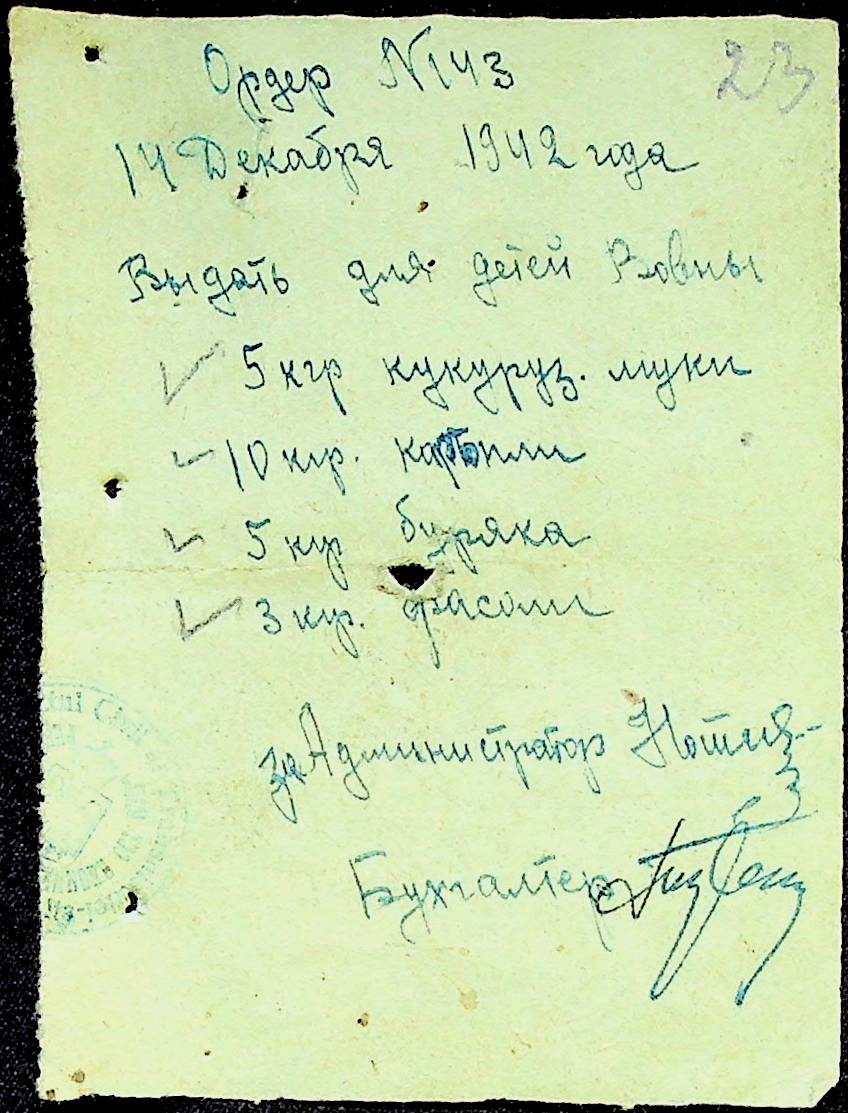 23
Ордер N143
14 Декабря 1942 года
Выдать для детей Вовны
5 кгр кукуруз. муки
10 кгр. картпли
5 кгр буряка
3 кгр. фасоли
за Администратор
Бухгалтер